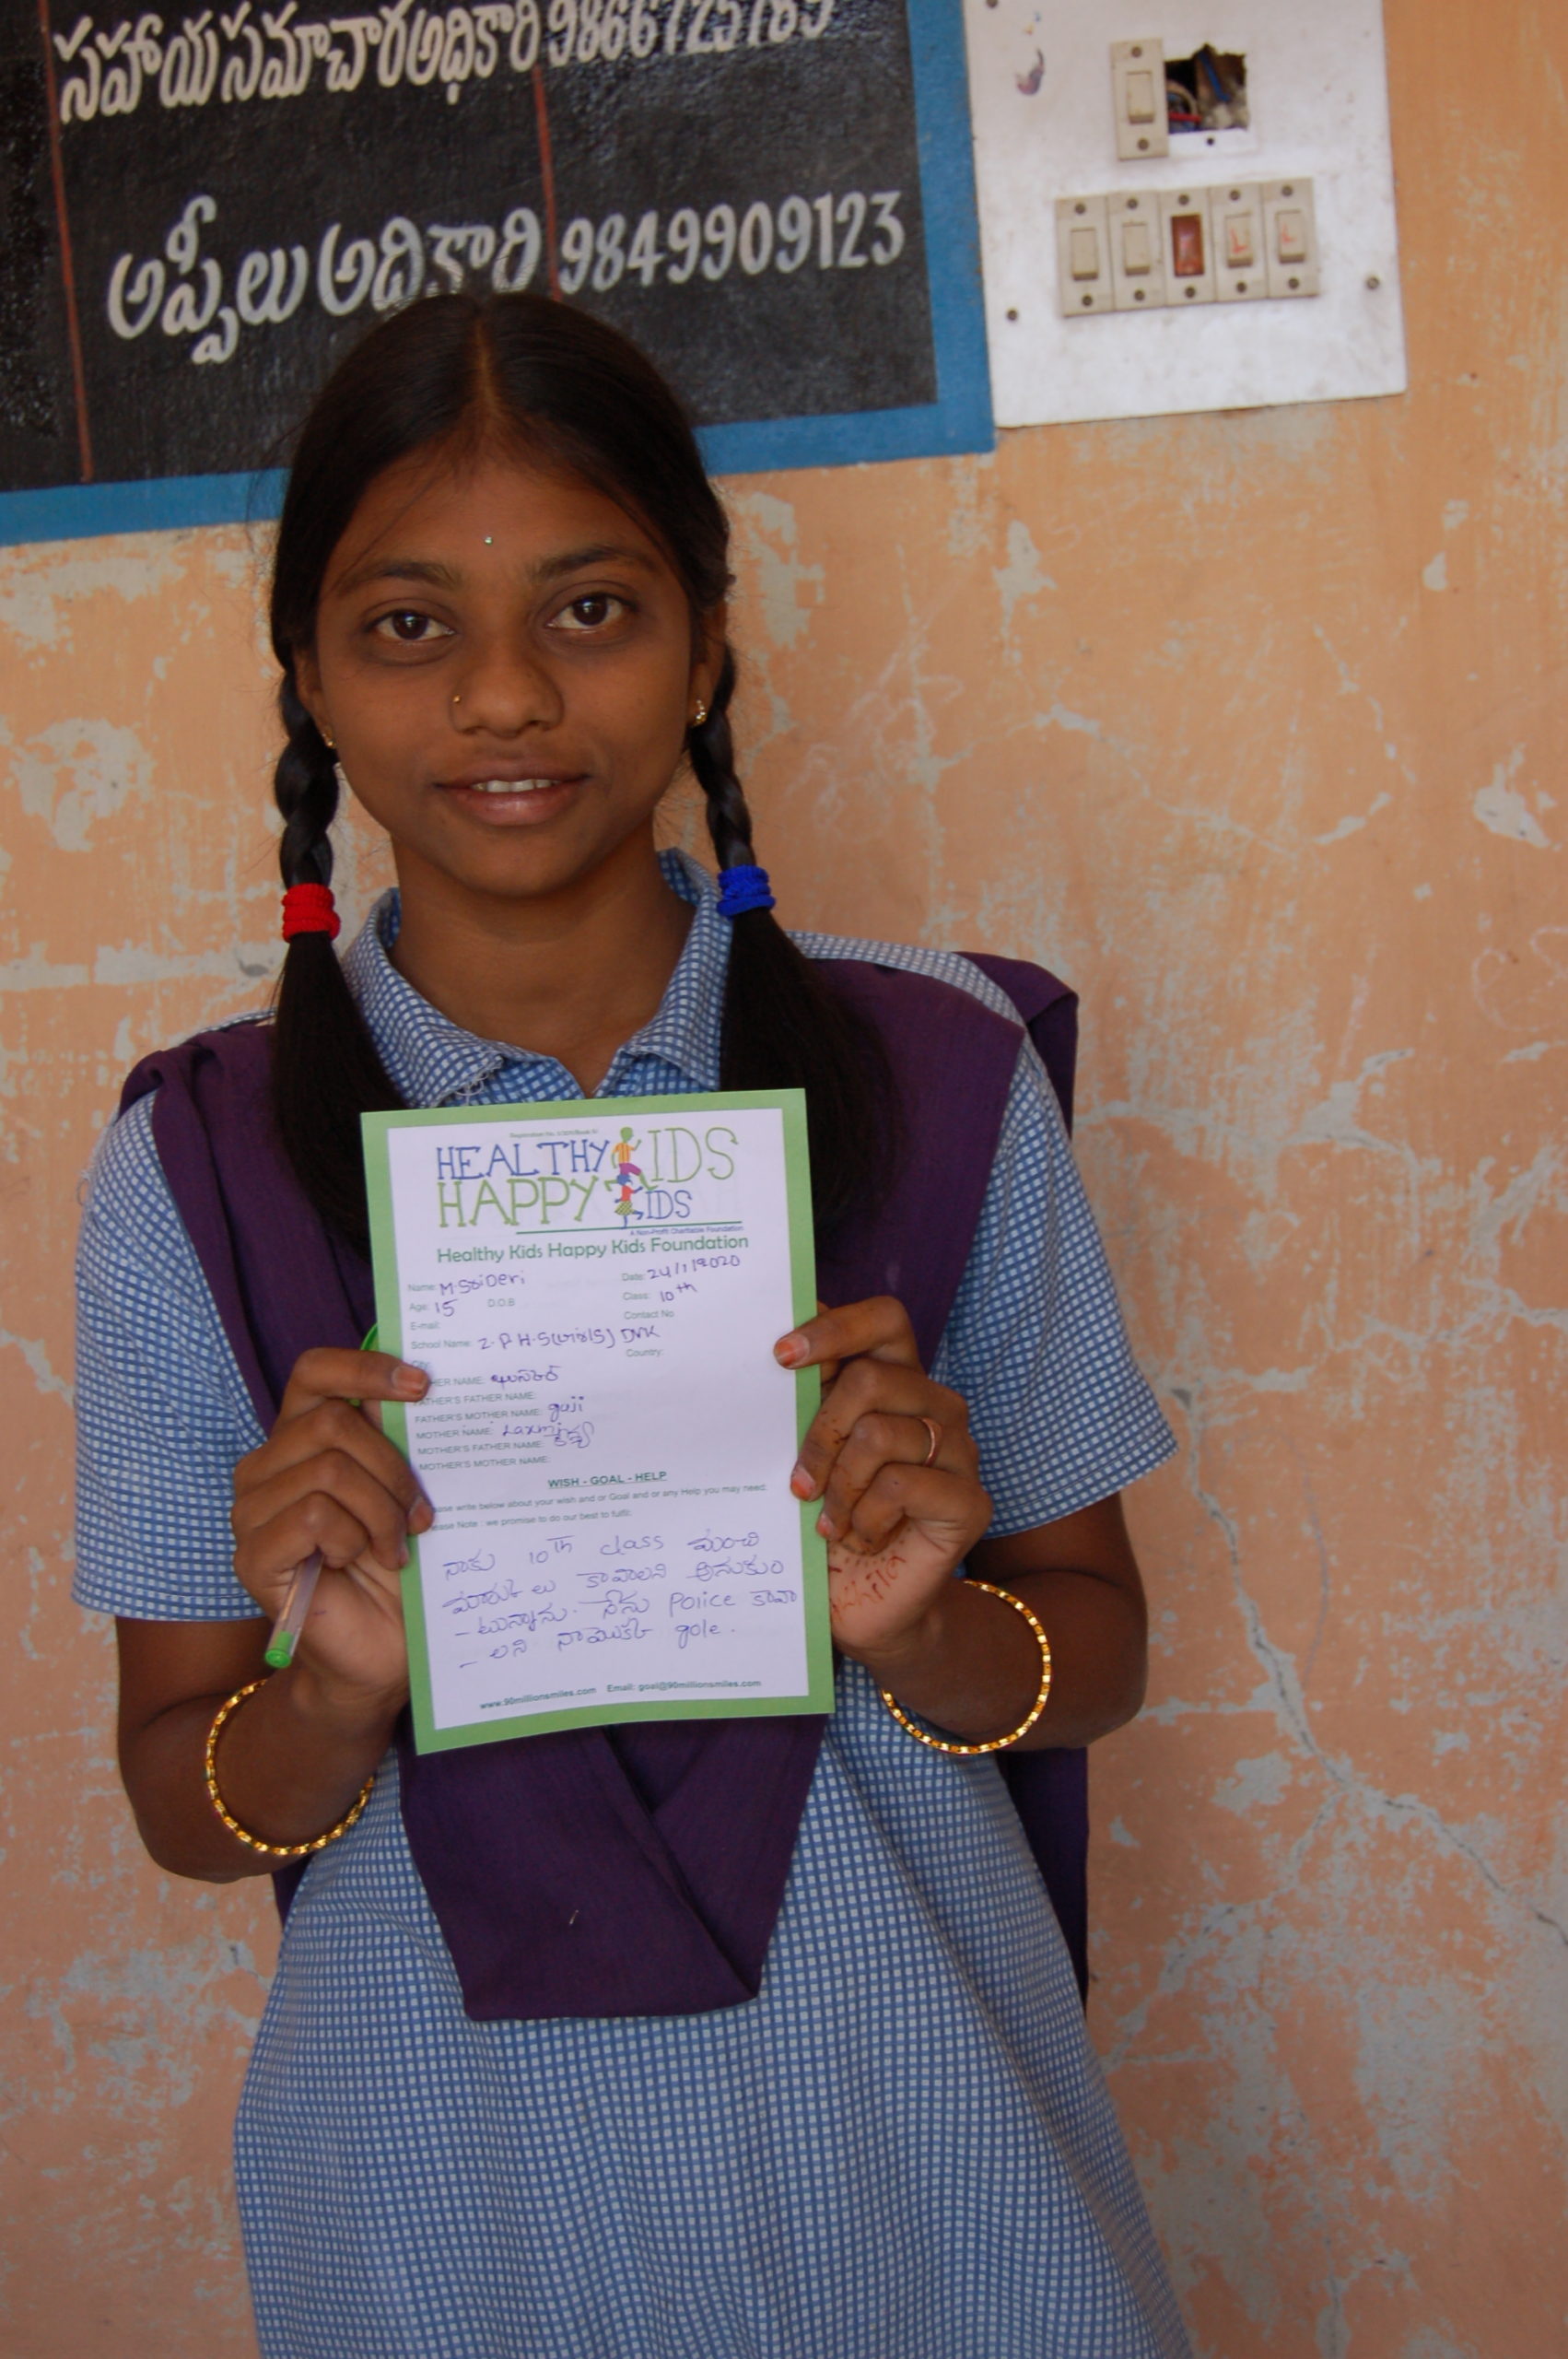 సహాయ సమాచార అధికారి 9866725789
అప్పీలు అధికారి 9849909123
HEALTHY KIDS
HAPPY KIDS
A Non-Profit Charitable Foundation
Healthy Kids Happy Kids Foundation
Name: M Sri Devi Date: 24/1/2020
Age: 15 D.O.B Class: 10th
E-mail: Contact No
School Name: Z.P.H.S(Girls) DVK
Country:
HER NAME:
FATHER'S FATHER NAME:
FATHER'S MOTHER NAME: guji
MOTHER NAME: Laxmi
MOTHER'S FATHER NAME:
MOTHER'S MOTHER NAME:
WISH - GOAL - HELP
ease write below about your wish and or Goal and or any Help you may need.
ease Note : we promise to do our best to fulfil.
నాకు 10th class మంచి
మార్కులు కావాలని అనుకుం
- టున్నాను. నేను Police కావా
- లని నాయొక్క gole.
www.90millionsmiles.com Email: goal@90millionsmiles.com